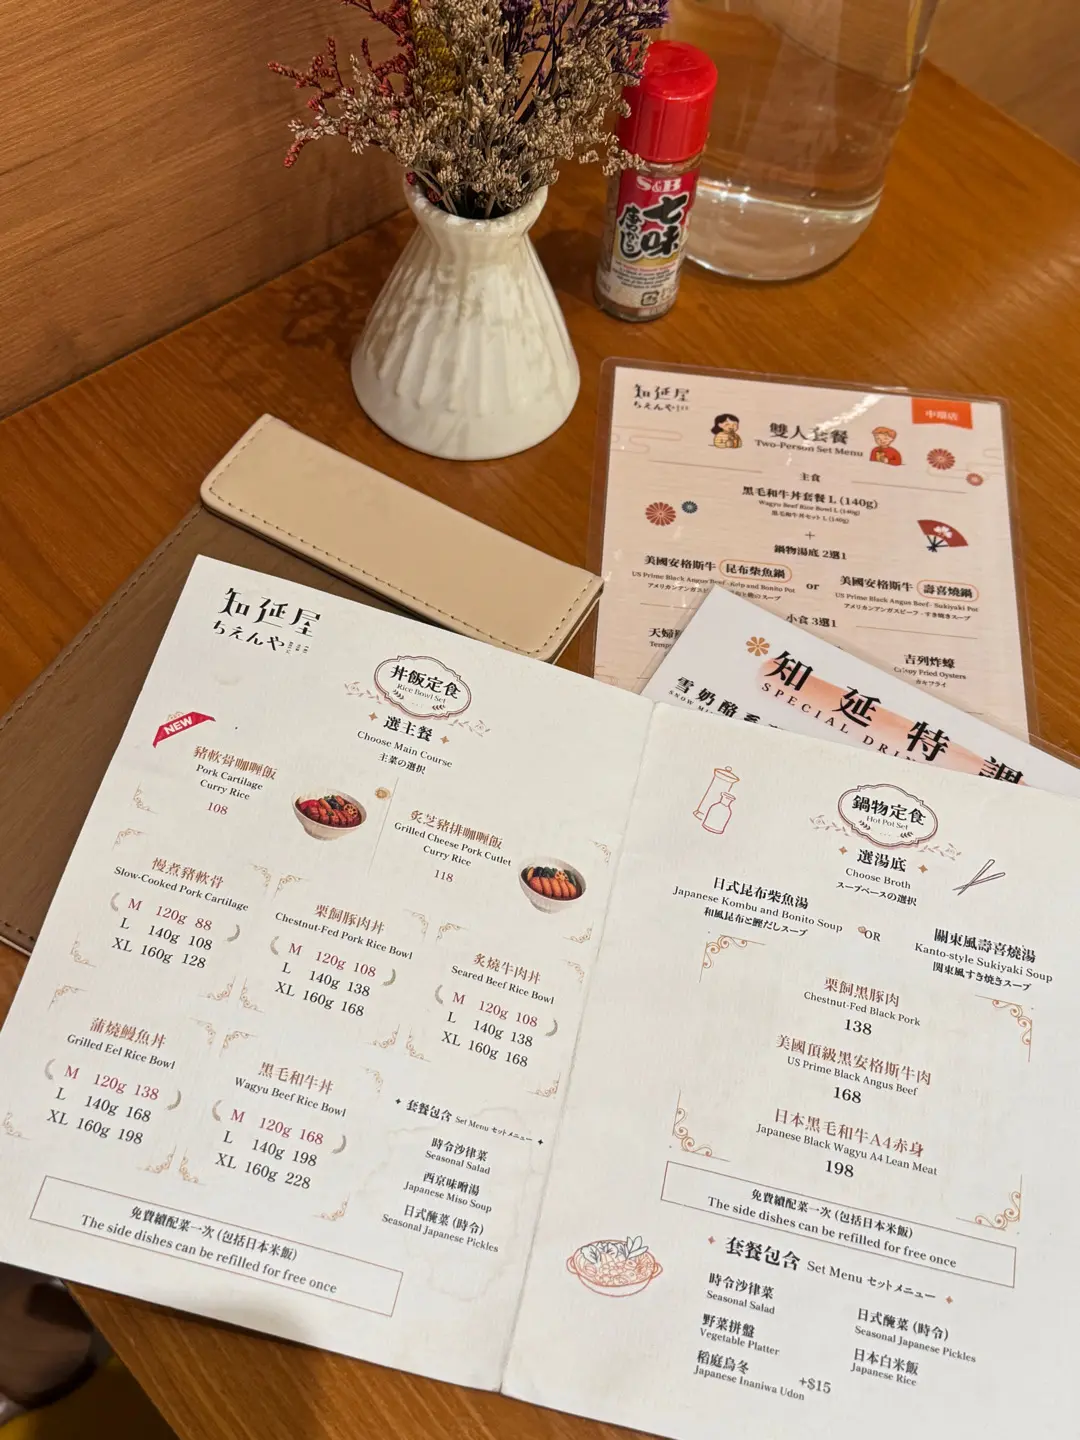 S&B
七味
唐からし
知延屋
ちえんや
中環店
雙人套餐
Two-Person Set Menu
主食
黑毛和牛丼套餐 L (140g)
Wagyu Beef Rice Bowl L (140g)
黒毛和牛丼セット L (140g)
+
鍋物湯底 2選1
美國安格斯牛 昆布柴魚鍋
US Prime Black Angus Beef -Kelp and Bonito Pot
or
美國安格斯牛 壽喜燒鍋
US Prime Black Angus Beef- Sukiyaki Pot
アメリカンアンガスビーフ - すき焼きスープ
小食 3選1
吉列炸蠔
Crispy Fried Oysters
カキフライ
知延特調
SPECIAL
雪奶酪
知延屋
ちえんや
丼飯定食
Rice Bowl Set
選主餐
Choose Main Course
主菜の選択
NEW
豬軟骨咖喱飯
Pork Cartilage
Curry Rice
108
炙芝豬排咖喱飯
Grilled Cheese Pork Cutlet
Curry Rice
118
慢煮豬軟骨
Slow-Cooked Pork Cartilage
M 120g 88
L 140g 108
XL 160g 128
栗飼豚肉丼
Chestnut-Fed Pork Rice Bowl
M 120g 108
L 140g 138
XL 160g 168
炙燒牛肉丼
Seared Beef Rice Bowl
M 120g 108
L 140g 138
XL 160g 168
蒲燒鰻魚丼
Grilled Eel Rice Bowl
M 120g 138
L 140g 168
XL 160g 198
黑毛和牛丼
Wagyu Beef Rice Bowl
M 120g 168
L 140g 198
XL 160g 228
套餐包含 Set Menu セットメニュー
時令沙律菜
Seasonal Salad
西京味噌湯
Japanese Miso Soup
日式醃菜 (時令)
Seasonal Japanese Pickles
免費續配菜一次 (包括日本米飯)
The side dishes can be refilled for free once
鍋物定食
Hot Pot Set
選湯底
Choose Broth
スープベースの選択
日式昆布柴魚湯
Japanese Kombu and Bonito Soup
和風昆布と鰹だしスープ
OR
關東風壽喜燒湯
Kanto-style Sukiyaki Soup
関東風すき焼きスープ
栗飼黑豚肉
Chestnut-Fed Black Pork
138
美國頂級黑安格斯牛肉
US Prime Black Angus Beef
168
日本黑毛和牛A4赤身
Japanese Black Wagyu A4 Lean Meat
198
免費續配菜一次 (包括日本米飯)
The side dishes can be refilled for free once
套餐包含 Set Menu セットメニュー
時令沙律菜
Seasonal Salad
野菜拼盤
Vegetable Platter
稻庭烏冬 +$15
Japanese Inaniwa Udon
日式醃菜 (時令)
Seasonal Japanese Pickles
日本白米飯
Japanese Rice